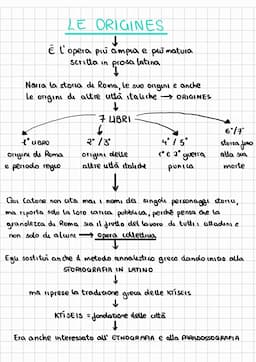 LE ORIGINES
È l'opera più ampia e più matura
scritta in prosa latina
Narra la storia di Roma, le sue origini e anche
le origini di altre città italiche → ORIGINES
7 LIBRI
1° LIBRO
origini di Roma
e periodo regio
2°/3°
origini delle
altre città italiche
4°/5°
1° e 2° guerra
punica
6°/7°
storia fino
alla sua
morte
Qui Catone non cita mai i nomi dei singoli personaggi storici,
ma riporta solo la loro carica pubblica, perché pensa che la
grandezza di Roma sia il frutto del lavoro di tutti i cittadini e
non solo di alcuni → opera collettiva
Egli sostituì anche il metodo annalistico greco dando inizio alla
STORIOGRAFIA IN LATINO
ma riprese la tradizione greca delle KTÍSEIS
KTÍSEIS = fondazione delle città
Era anche interessato all' ETNOGRAFIA e alla PARADOSSOGRAFIA